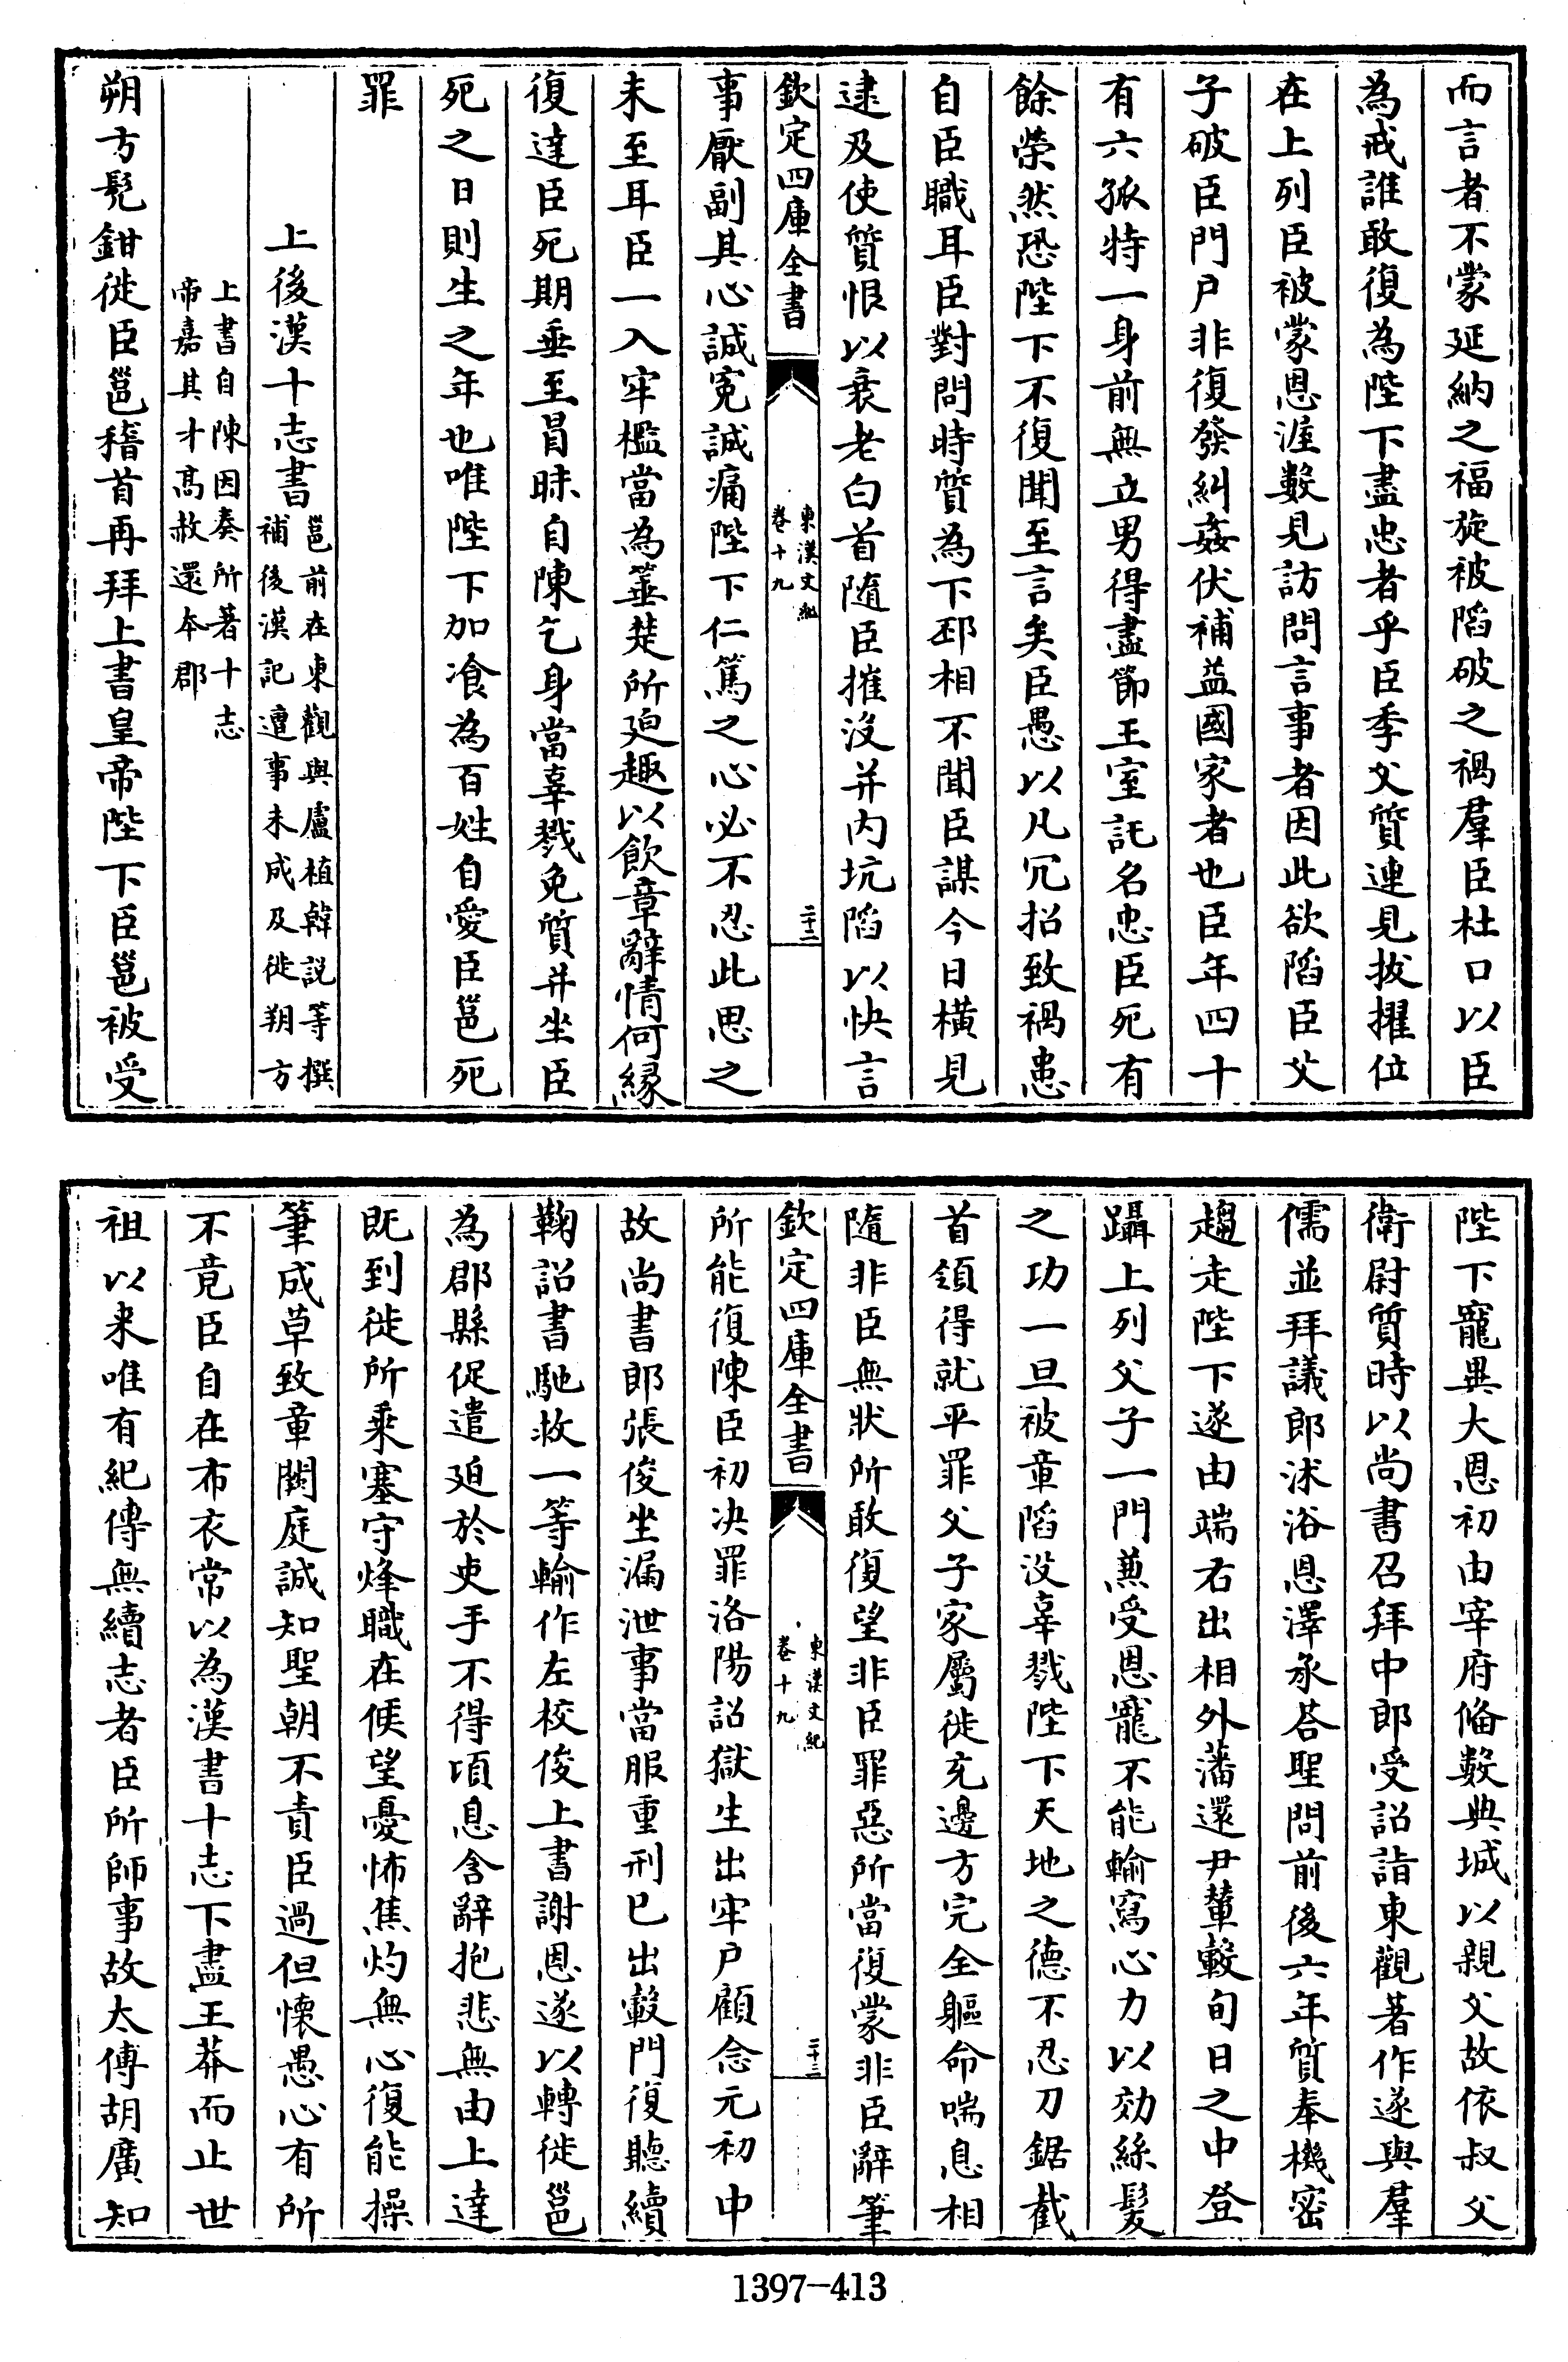 而言者不蒙延納之福旋被䧟破之禍羣臣杜口以臣
為戒誰敢復為陛下盡忠者乎臣季父質連見拔擢位
在上列臣被蒙恩渥數見訪問言事者因此欲䧟臣父
子破臣門戶非復發糾姦伏補益國家者也臣年四十
有六孤特一身前無立男得盡節王室託名忠臣死有
餘榮然恐陛下不復聞至言矣臣愚以凡冗招致禍患
自臣職耳臣對問時質為下邳相不聞臣謀今日橫見
逮及使質恨以衰老白首隨臣摧沒并内坑䧟以快言
欽定四庫全書
東漢文紀
卷十九
二十二
事厭副其心誠冤誠痛陛下仁篤之心必不忍此思之
未至耳臣一入牢檻當為箠楚所廹趣以飲章辭情何縁
復達臣死期垂至冒昧自陳乞身當辜戮免質并坐臣
死之日則生之年也唯陛下加飡為百姓自愛臣邕死
罪
上後漢十志書
邕前在東觀與盧植韓説等撰
補後漢記遭事未成及徙朔方
上書自陳因奏所著十志
帝嘉其才高赦還本郡
朔方髠鉗徙臣邕稽首再拜上書皇帝陛下臣邕被受
陛下寵異大恩初由宰府備數典城以親父故依叔父
衛尉質時以尚書召拜中郎受詔詣東觀著作遂與羣
儒並拜議郎沭浴恩澤承荅聖問前後六年質奉機密
趨走陛下遂由端右出相外藩還尹輦轂旬日之中登
躡上列父子一門兼受恩寵不能輸寫心力以効絲髮
之功一旦被章䧟没辜戮陛下天地之德不忍刀鋸截
首領得就平罪父子家屬徙充邊方完全軀命喘息相
隨非臣無狀所敢復望非臣罪惡所當復蒙非臣辭筆
欽定四庫全書
東漢文紀
卷十九
二十三
所能復陳臣初决罪洛陽詔獄生出牢戶顧念元初中
故尚書郎張俊坐漏泄事當服重刑已出轂門復聽續
鞫詔書馳救一等輸作左校俊上書謝恩遂以轉徙邕
為郡縣促遣廹於吏手不得頃息含辭抱悲無由上達
既到徙所乘塞守烽職在候望憂怖焦灼無心復能操
筆成草致章闕庭誠知聖朝不責臣過但懐愚心有所
不竟臣自在布衣常以為漢書十志下盡王莽而止世
祖以来唯有紀傳無續志者臣所師事故太傅胡廣知
1397-413